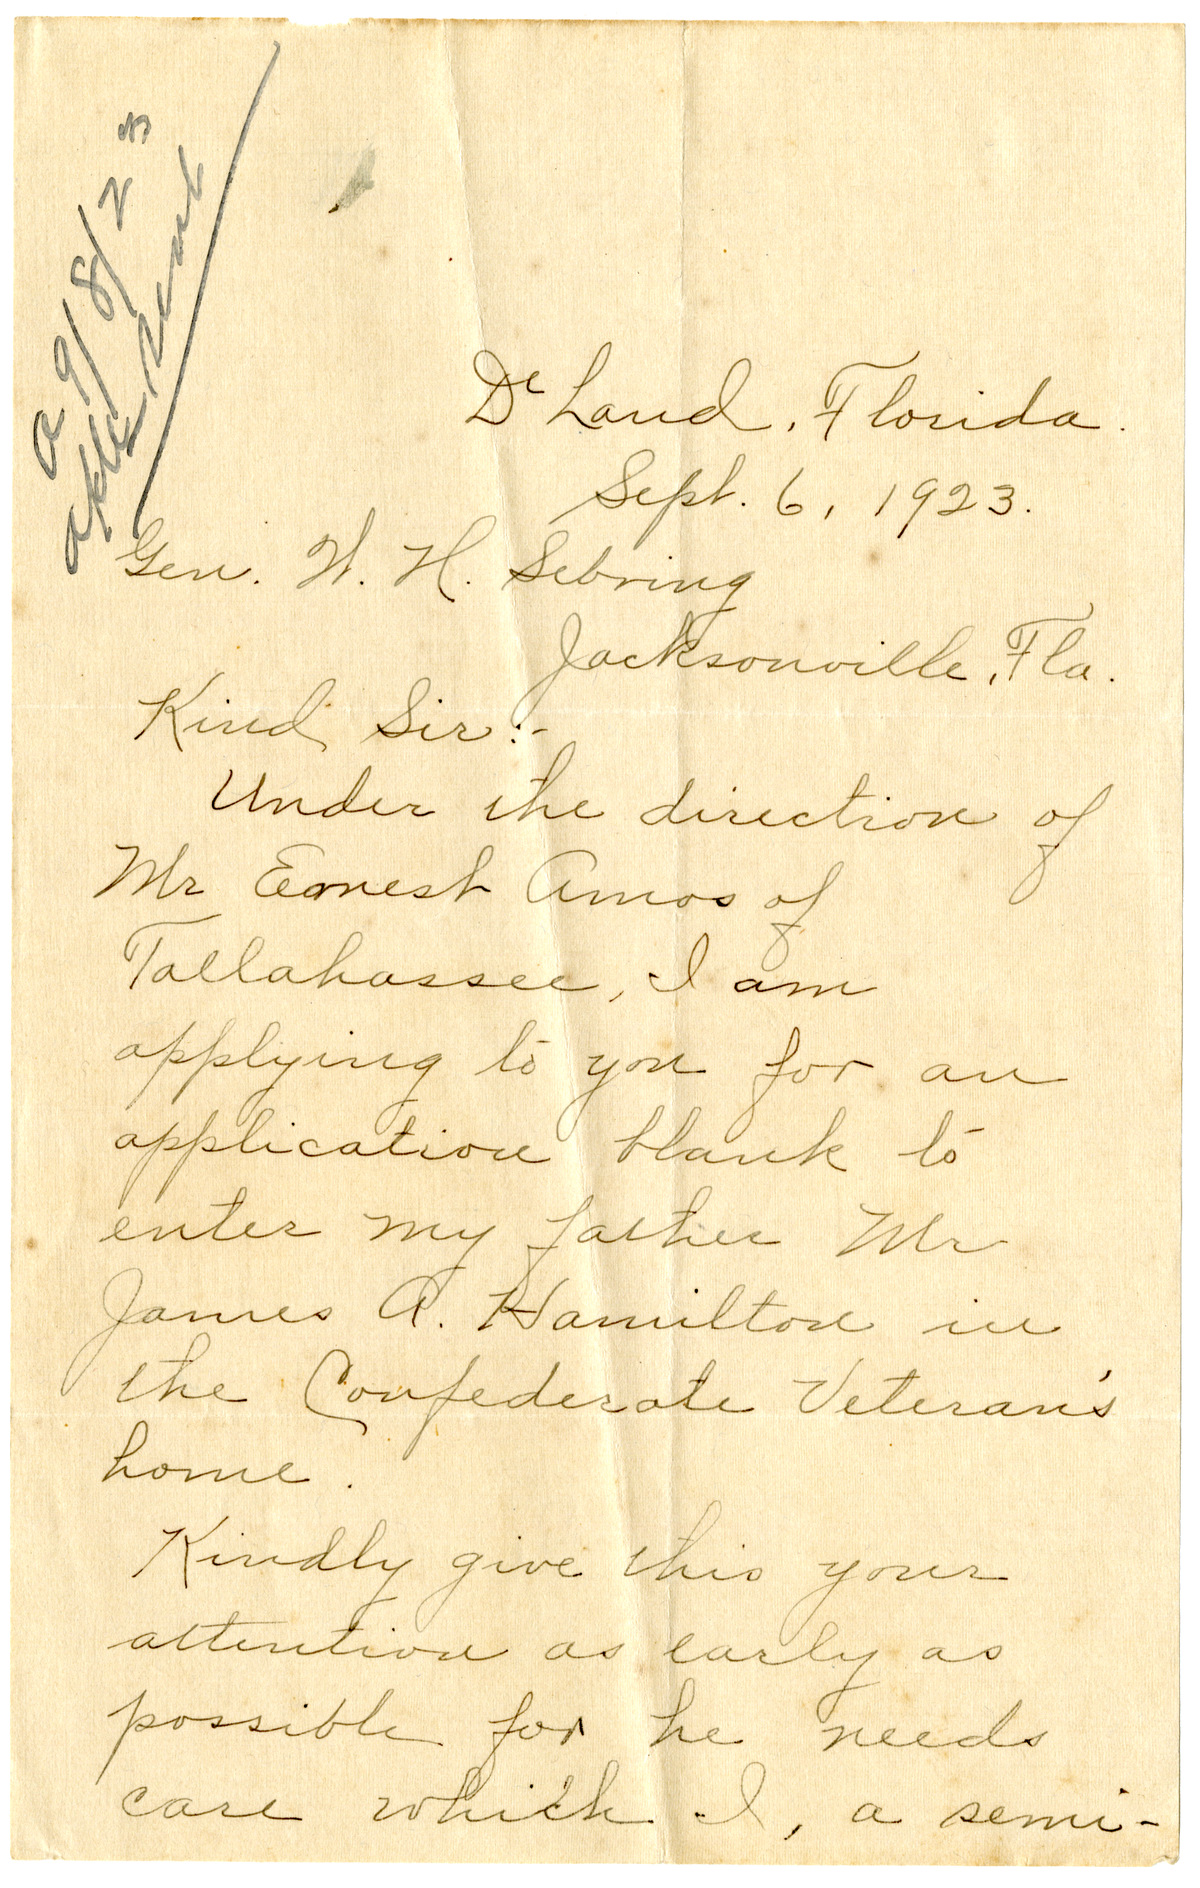 a 9/8/23
DeLand, Florida.
Sept. 6, 1923.
Gen. W. H. Sebring
Jacksonville, Fla.
Kind Sir:-
Under the direction of
Mr Earnest Amos of
Tallahassee, I am
applying to you for an
application blank to
enter my father Mr
James A. Hamilton in
the Confederate Veteran's
home.
Kindly give this your
attention as early as
possible for he needs
care which I, a semi-